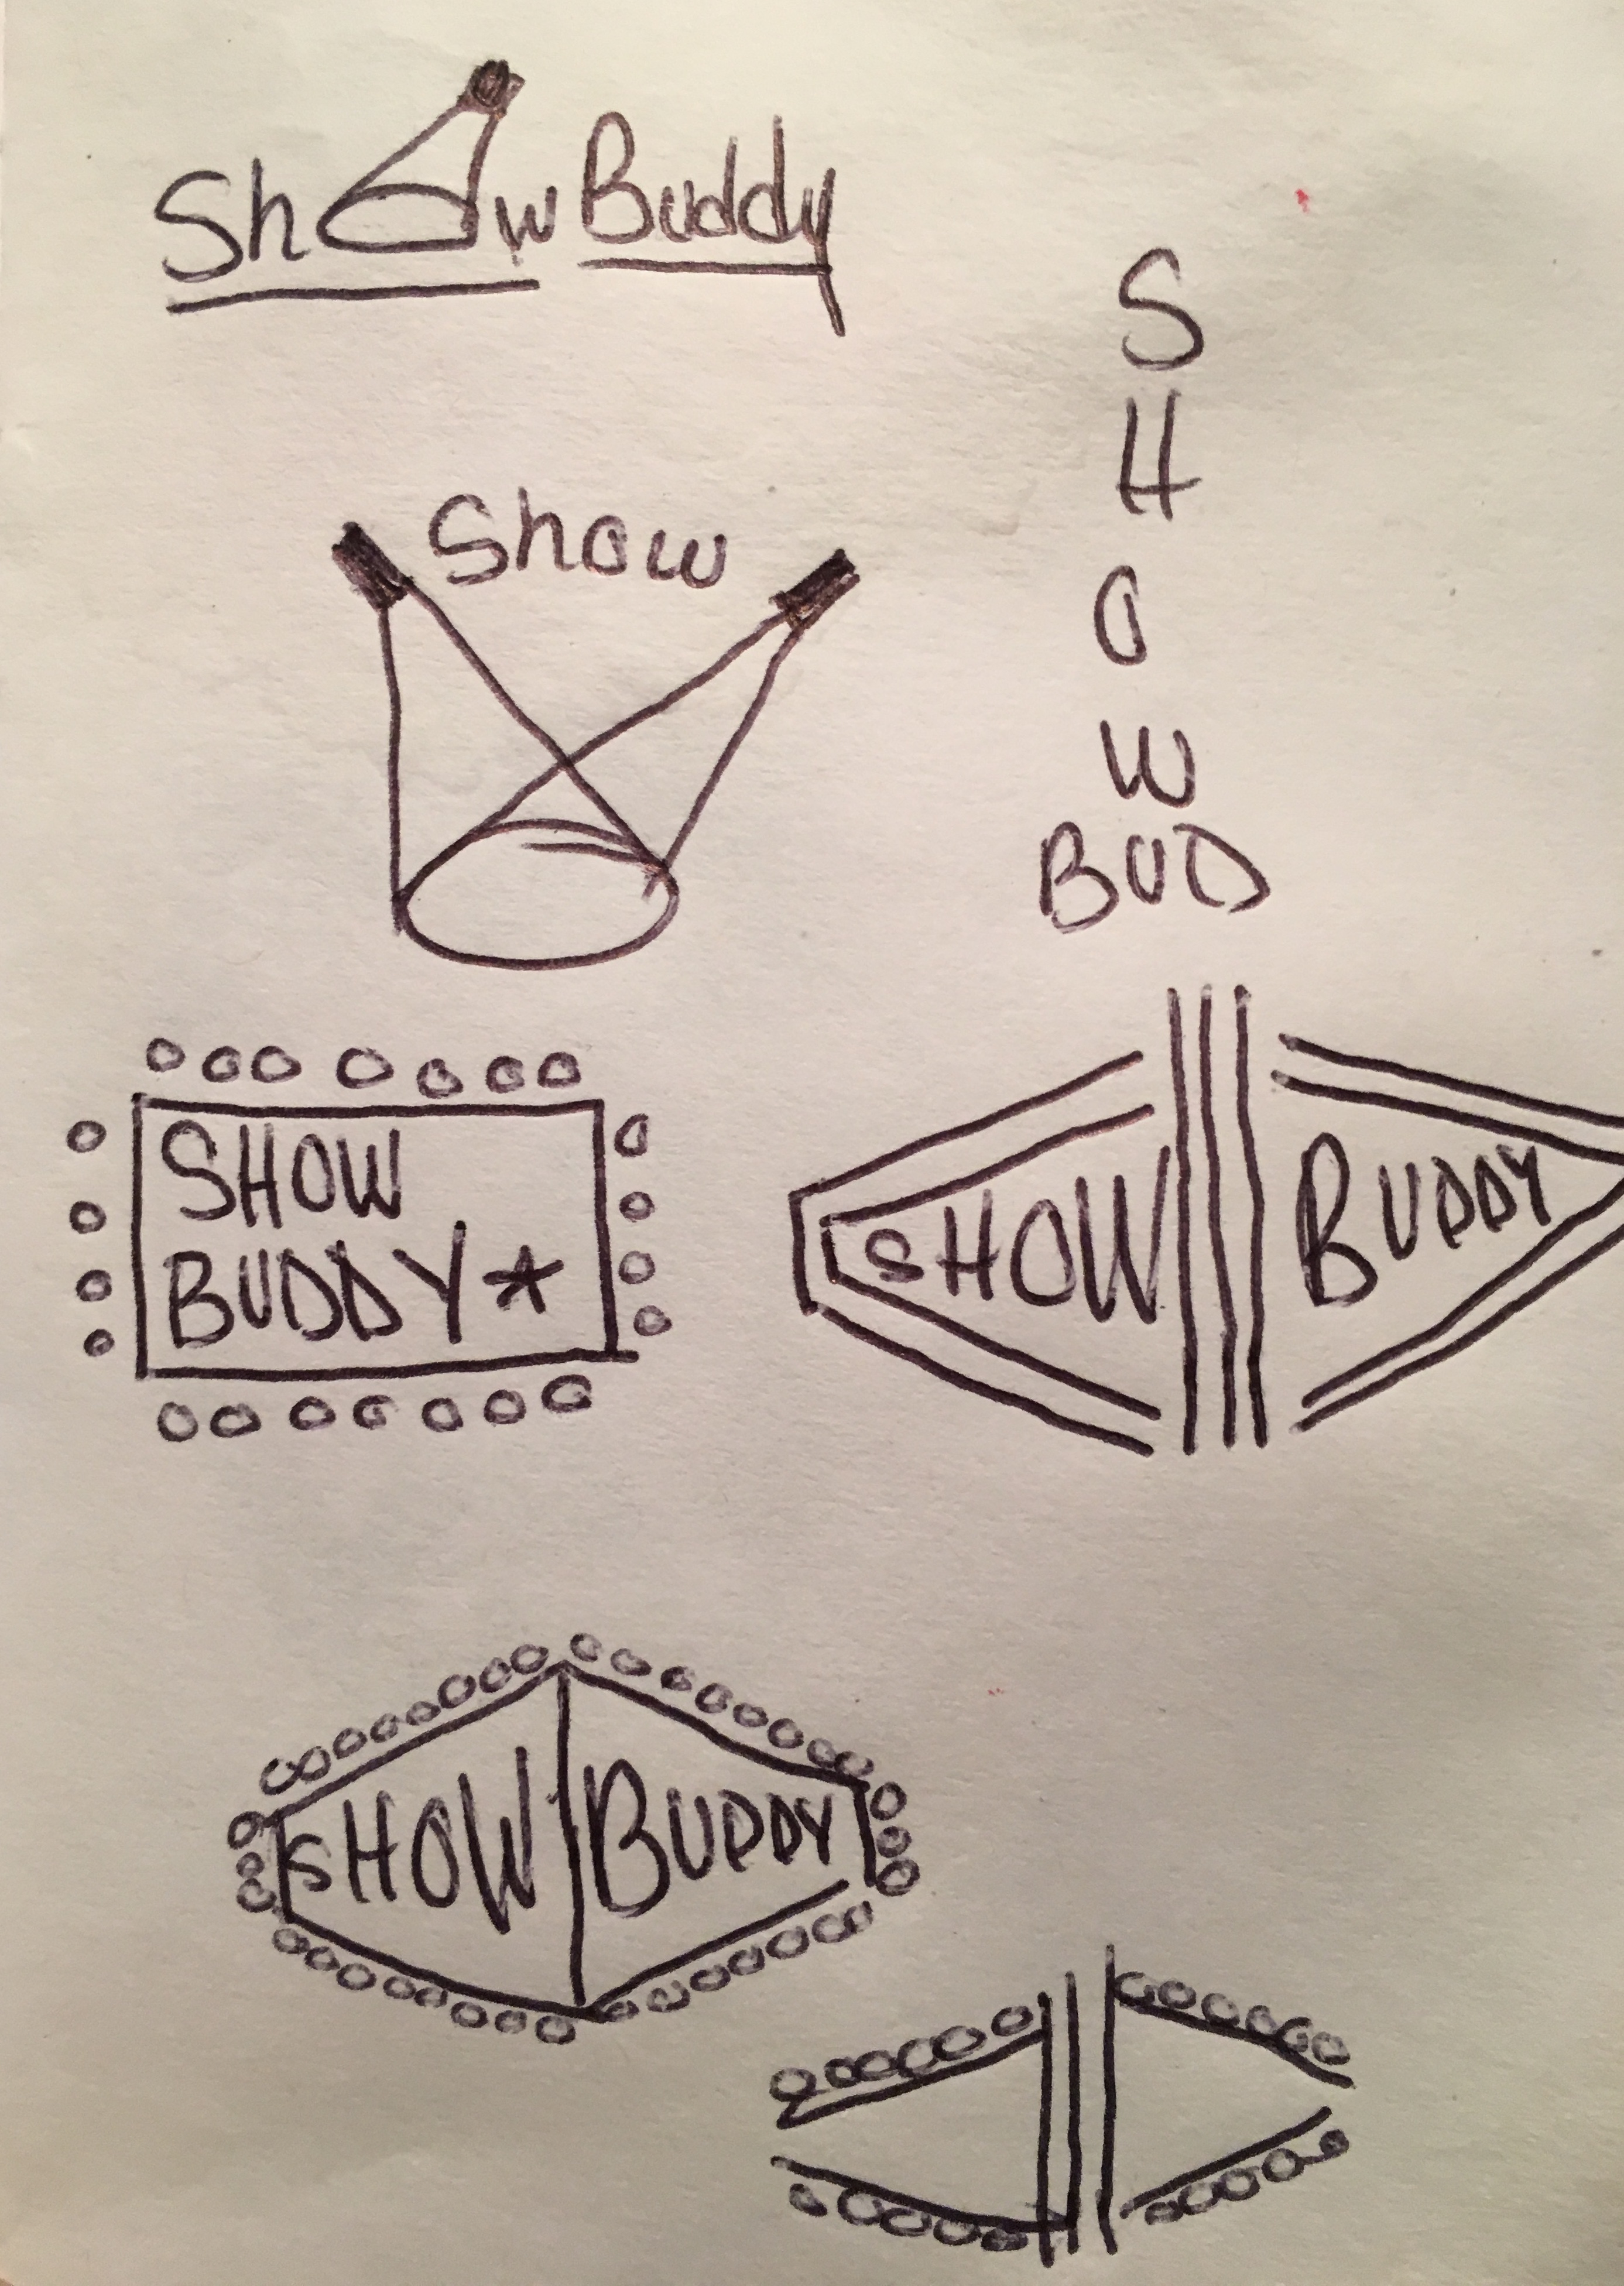 Show Buddy
Show
S
H
O
W
BUD
SHOW
BUDDY*
SHOW BUDDY
SHOW BUDDY